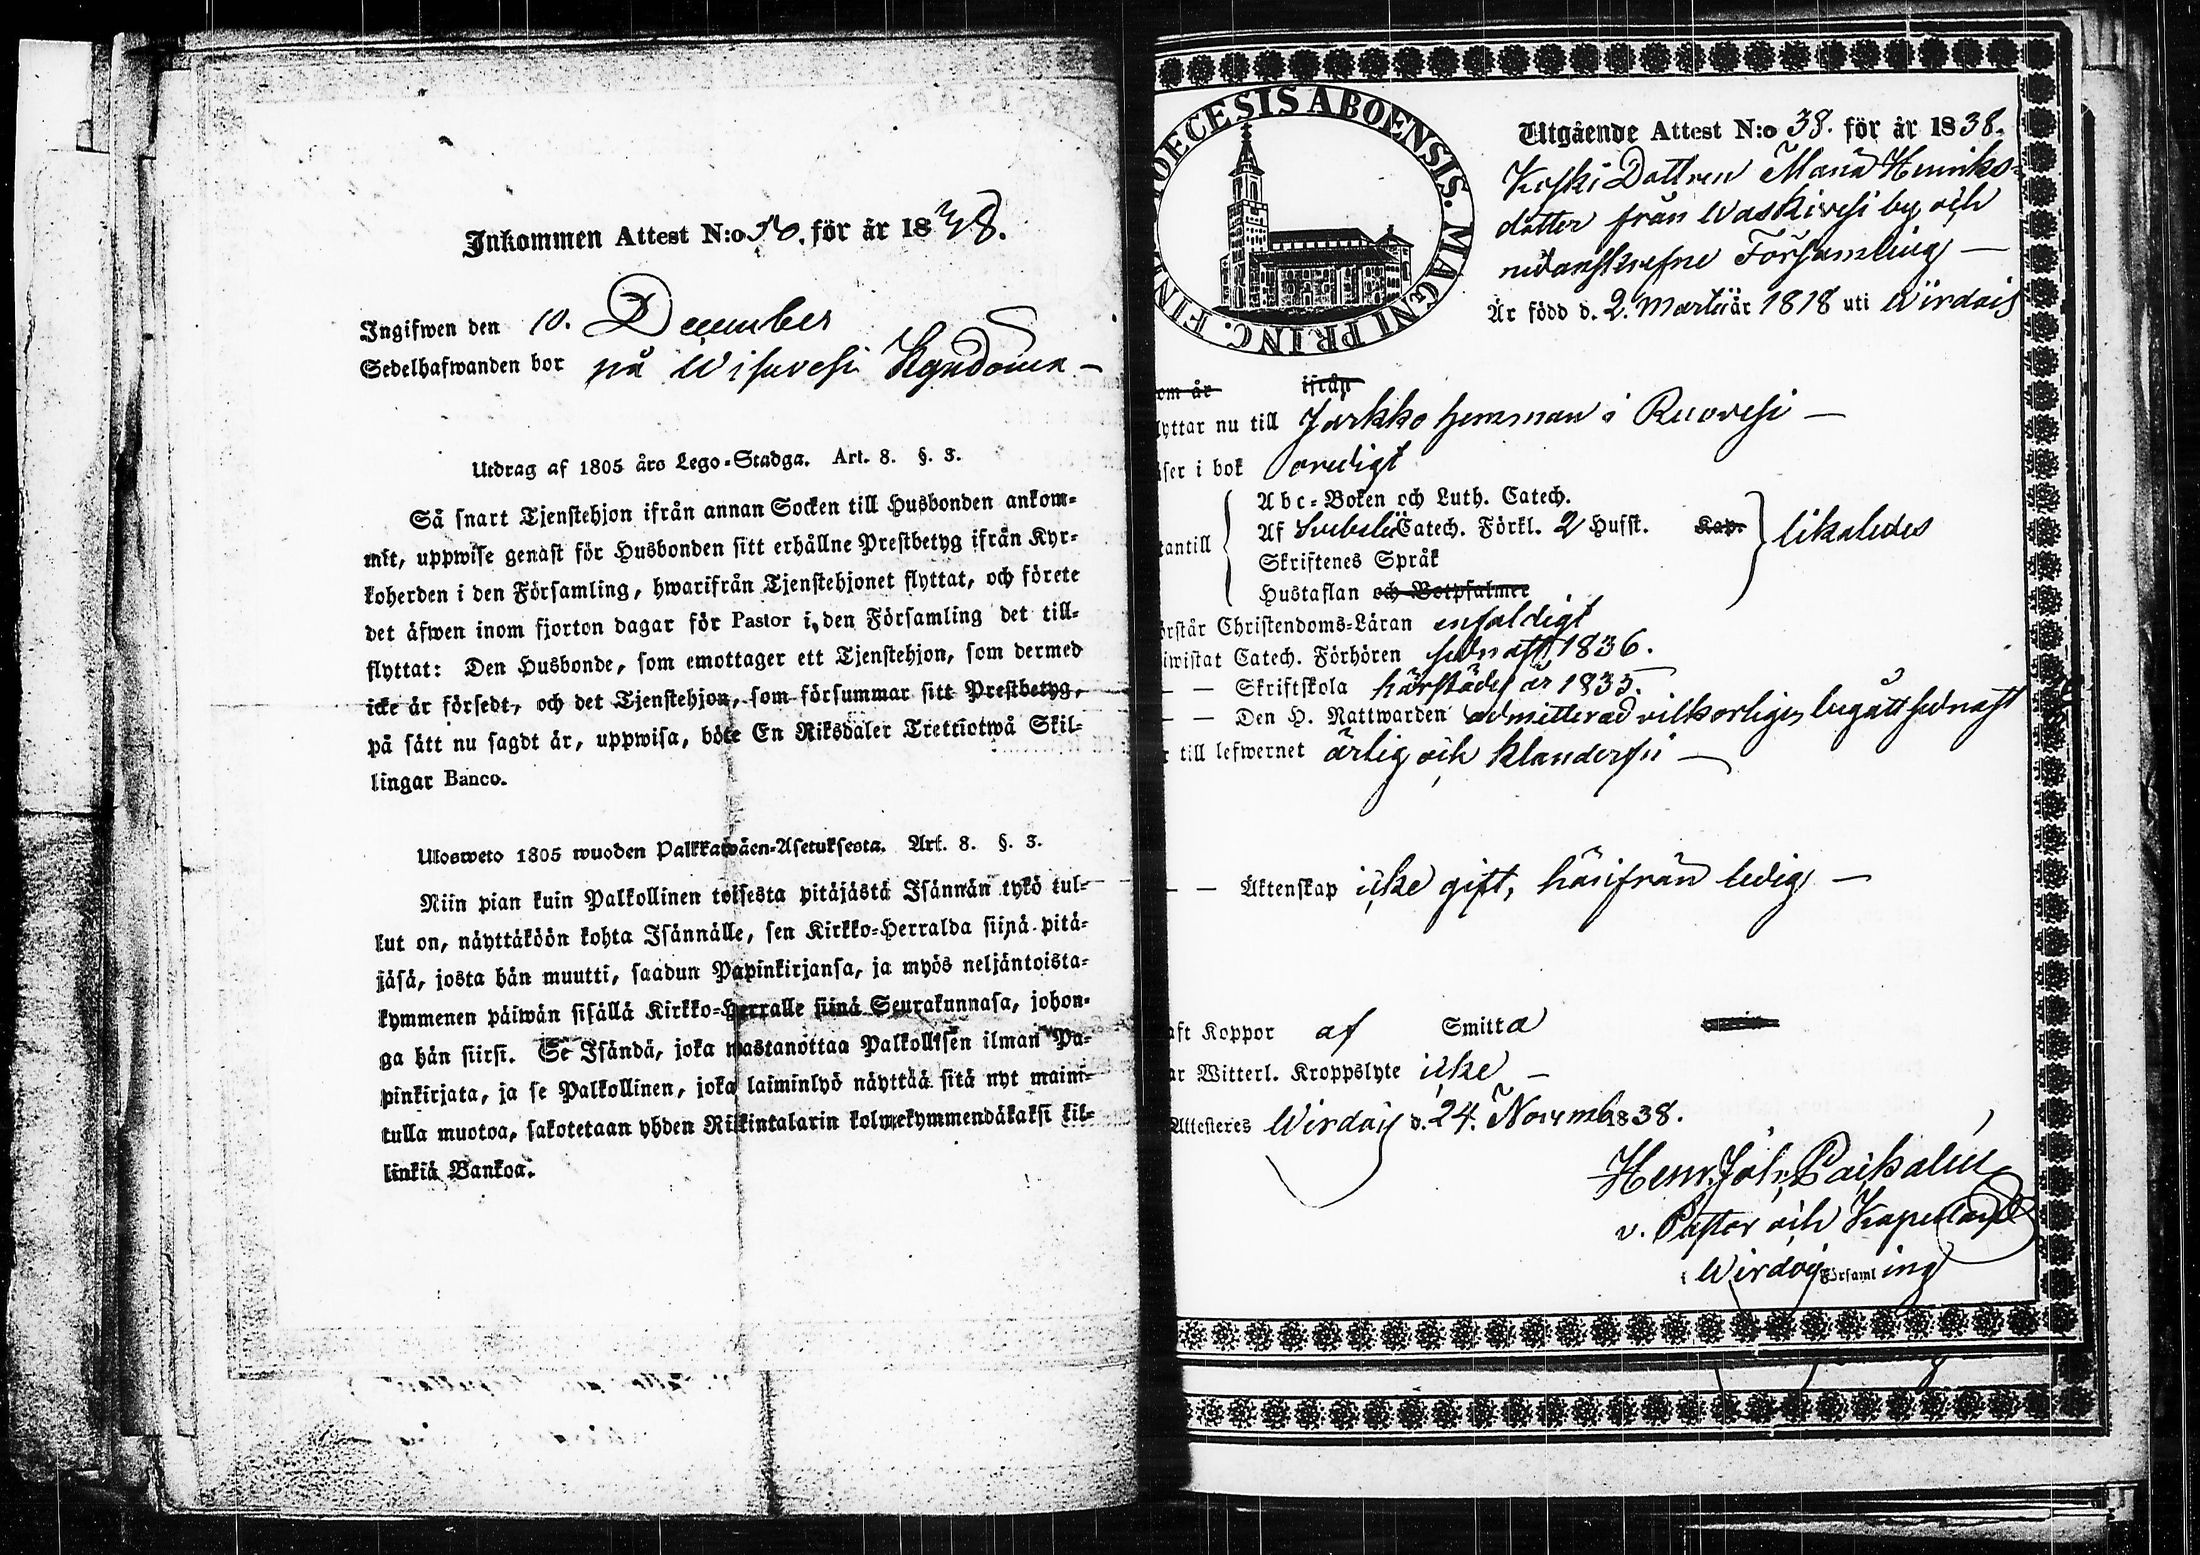 Inkommen Attest N:o 50. för år 1838.
Ingifwen den 10. December
Sedelhafwanden bor på Wisuvesi
Utdrag af 1805 års Lego-Stadga. Art. 8. §. 3.
Så snart Tjenstehjon ifrån annan Socken till Husbonden ankom-
mit, uppwise genast för Husbonden sitt erhållne Prestbetyg ifrån Kyr-
koherden i den Församling, hwarifrån Tjenstehjonet flyttat, och förete
det äfwen inom fjorton dagar för Pastor i den Församling det till-
flyttat: Den Husbonde, som emottager ett Tjenstehjon, som dermed
icke är försedt, och det Tjenstehjon, som försummar sitt Prestbetyg,
på sätt nu sagdt är, uppwisa, böte En Riksdaler Trettiotwå Skil-
lingar Banco.
Ulosweto 1805 wuoden Palkkawäen-Asetuksesta. Art. 8. §. 3.
Niin pian kuin Palkollinen toisesta pitäjästä Isännän tykö tul-
lut on, näyttäköön kohta Isännälle, sen Kirkko-Herralda siinä pitä-
jäsä, josta hän muutti, saadun Papinkirjansa, ja myös neljäntoista-
kymmenen päiwän sisällä Kirkko-Herralle siinä Seurakunnasa, johon-
ga hän siirsi. Se Isändä, joka wastanottaa Palkollisen ilman Pa-
pinkirjata, ja se Palkollinen, joka laiminlyö näyttää sitä nyt maini-
tulla muotoa, sakotetaan yhden Riikintalarin kolmekymmendäkaksi kil-
linkiä Bankoa.
DIOECESIS ABOENSIS. MAGNI PRINC. FINL
Utgående Attest N:o 38. för år 1838.
Koski Dottren Maria Henriks-
dotter från Waskivesi by och
nedanskrefne Församling —
Är född d. 2. Martii år 1818 uti Wirdois
om år ifrån
lyttar nu till Jarkko hemman i Ruovesi —
äser i bok oredigt
Abc-Boken och Luth. Catech.
Af Svebelii Catech. Förkl. 2 Hufst. Kap.
antill likaledes
Skriftenes Språk
Hustaflan och Botpsalmer
örstår Christendoms-Läran enfaldigt
iwistat Catech. Förhören sednast 1836.
— — Skriftskola härstädes år 1835.
— — Den H. Nattwarden admitterad vilkorligen begått sednast
r till lefwernet ärlig och klanderfri —
— — Äktenskap icke gift, härifrån ledig —
aft Koppor af Smitta
ar Witterl. Kroppslyte icke —
Attesteres Wirdois d. 24. Novemb. 1838.
Henr. Joh. Paikalin
v. Pastor och Kapellan
i Wirdois Församling